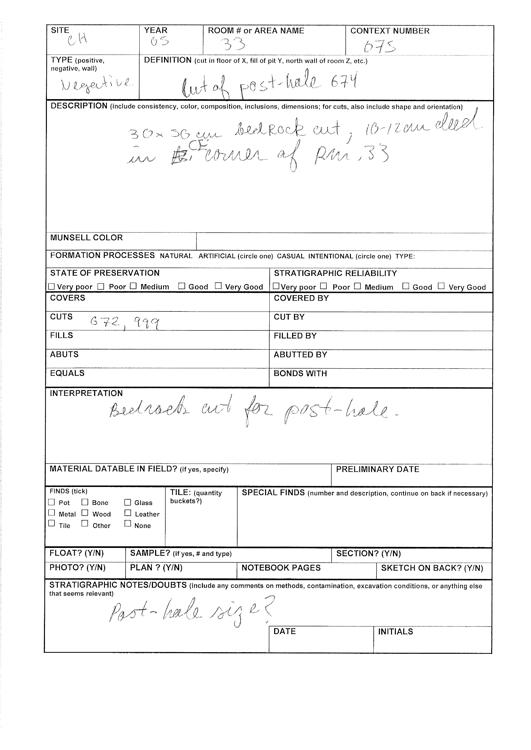 SITE YEAR ROOM # or AREA NAME CONTEXT NUMBER
CH 05 33 675
TYPE (positive, negative, wall) DEFINITION (cut in floor of X, fill of pit Y, north wall of room Z, etc.)
Negative Cut of post-hole 674
DESCRIPTION (include consistency, color, composition, inclusions, dimensions; for cuts, also include shape and orientation)
30x50 cm bedrock cut, 10-12cm deep
in corner of Rm. 33
MUNSELL COLOR
FORMATION PROCESSES NATURAL ARTIFICIAL (circle one) CASUAL INTENTIONAL (circle one) TYPE:
STATE OF PRESERVATION STRATIGRAPHIC RELIABILITY
☐ Very poor ☐ Poor ☐ Medium ☐ Good ☐ Very Good ☐ Very poor ☐ Poor ☐ Medium ☐ Good ☐ Very Good
COVERS COVERED BY
CUTS 672, 999 CUT BY
FILLS FILLED BY
ABUTS ABUTTED BY
EQUALS BONDS WITH
INTERPRETATION
Bedrock cut for post-hole.
MATERIAL DATABLE IN FIELD? (if yes, specify) PRELIMINARY DATE
FINDS (tick) TILE: (quantity SPECIAL FINDS (number and description, continue on back if necessary)
☐ Pot ☐ Bone ☐ Glass buckets?)
☐ Metal ☐ Wood ☐ Leather
☐ Tile ☐ Other ☐ None
FLOAT? (Y/N) SAMPLE? (if yes, # and type) SECTION? (Y/N)
PHOTO? (Y/N) PLAN ? (Y/N) NOTEBOOK PAGES SKETCH ON BACK? (Y/N)
STRATIGRAPHIC NOTES/DOUBTS (Include any comments on methods, contamination, excavation conditions, or anything else
that seems relevant)
Post-hole size?
DATE INITIALS